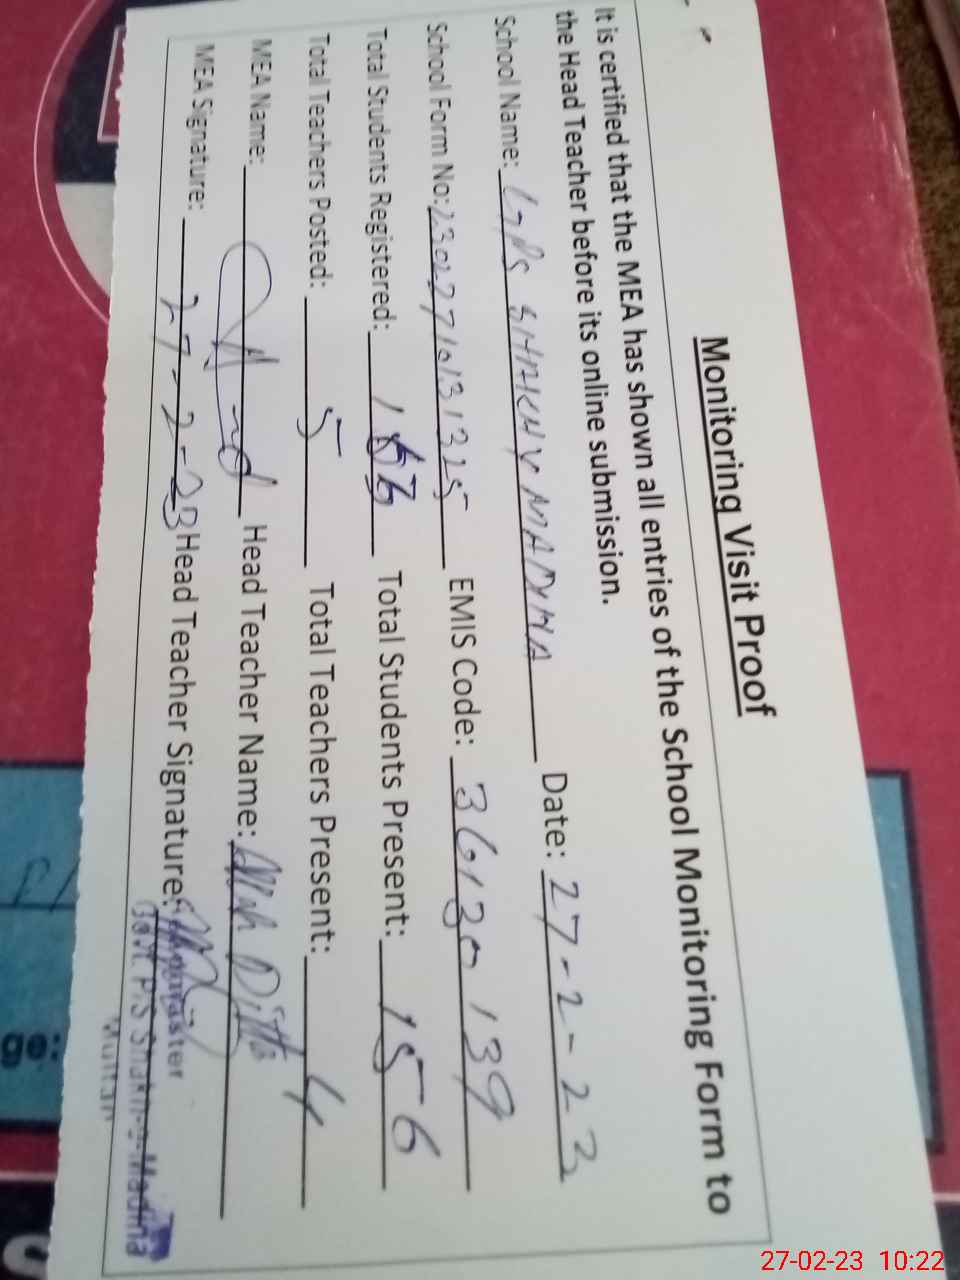 Monitoring Visit Proof
It is certified that the MEA has shown all entries of the School Monitoring Form to
the Head Teacher before its online submission.
School Name: GPS SHAKH Y MADINA Date: 27-2-23
School Form No: 23022710131325 EMIS Code: 36130139
Total Students Registered: Total Students Present: 156
Total Teachers Posted: 5 Total Teachers Present: 4
MEA Name: Head Teacher Name: Allah Ditta
MEA Signature: 27-2-23 Head Teacher Signature:
Govt. P/S Madina
Multan
ge:
27-02-23 10:22